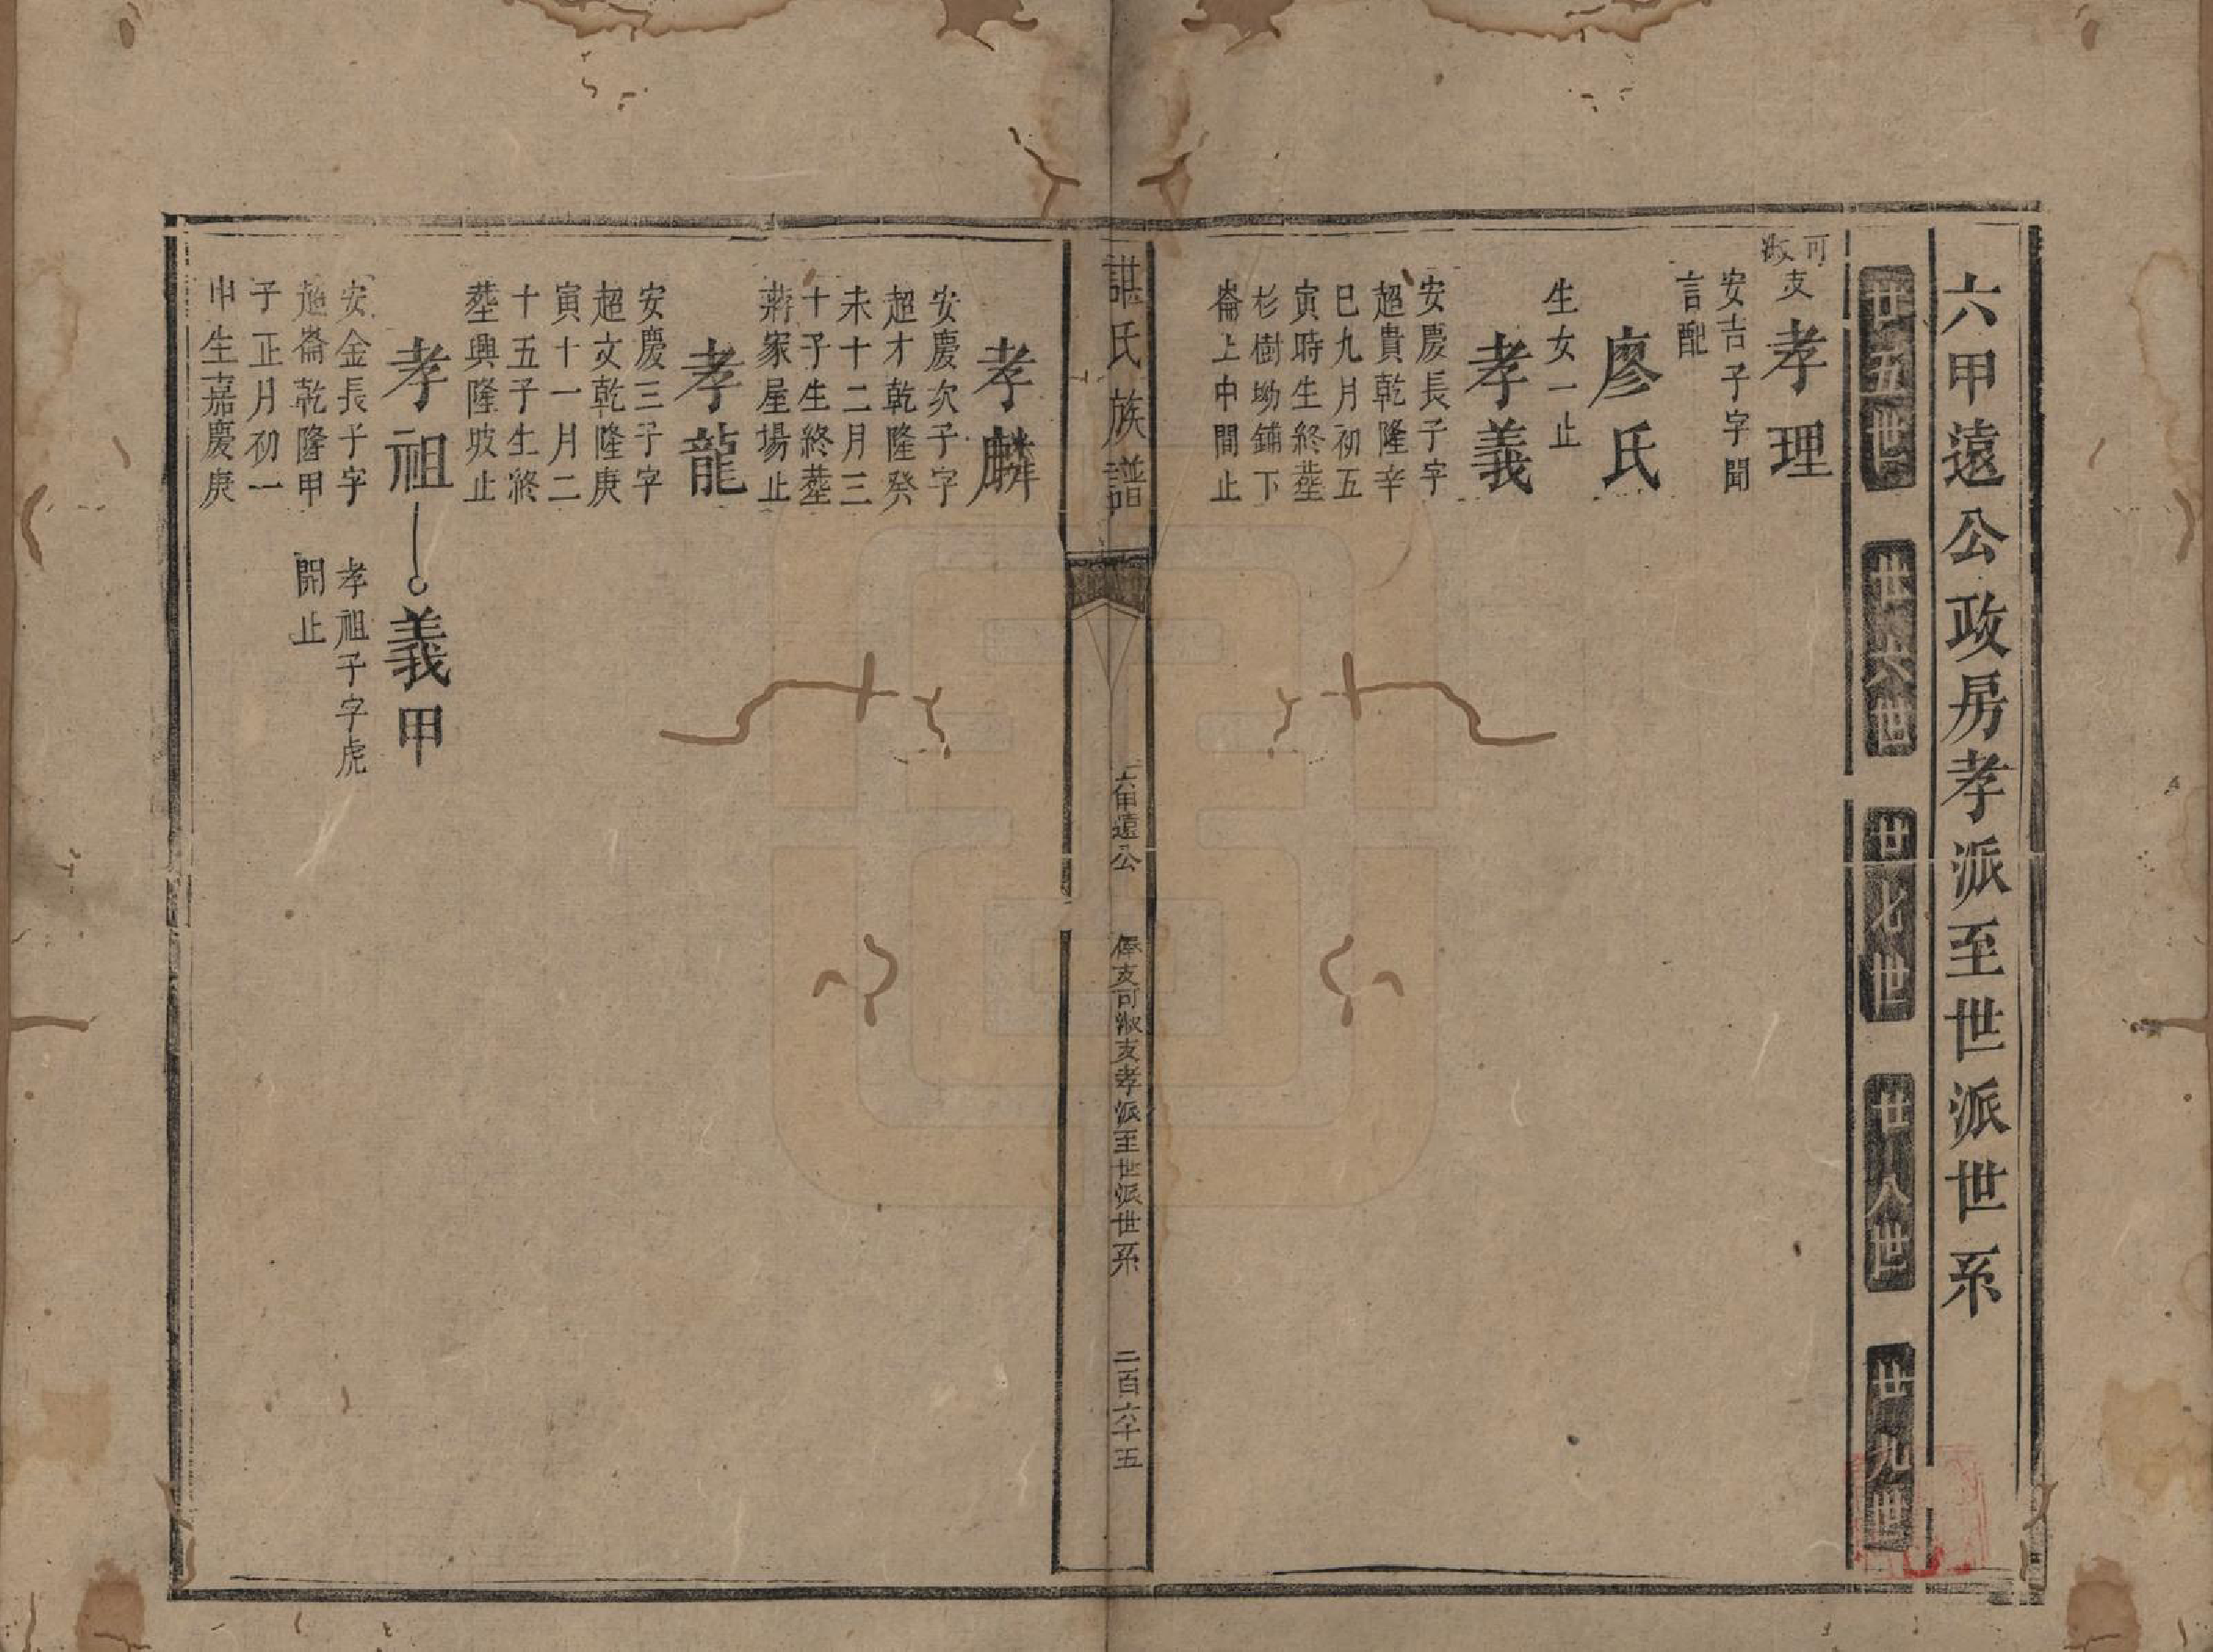 六甲遠公政房孝派至世派世系
廿五世 廿六世 廿七世 廿八世 廿九世
可淑支
孝理
安吉子字聞
言配
廖氏
生女一止
孝義
安慶長子字
超貴乾隆辛
巳九月初五
寅時生終塟
杉樹坳鋪下
崙上中間止
諶氏族譜
六甲遠公
俸支可淑支孝派至世派世系
二百六十五
孝麟
安慶次子字
超才乾隆癸
未十二月三
十子生終塟
蔣家屋場止
孝龍
安慶三子字
超文乾隆庚
寅十一月二
十五子生終
塟興隆坡止
孝祖
義甲
安金長子字
超崙乾隆甲
子正月初一
申生嘉慶庚
孝祖子字虎
開止